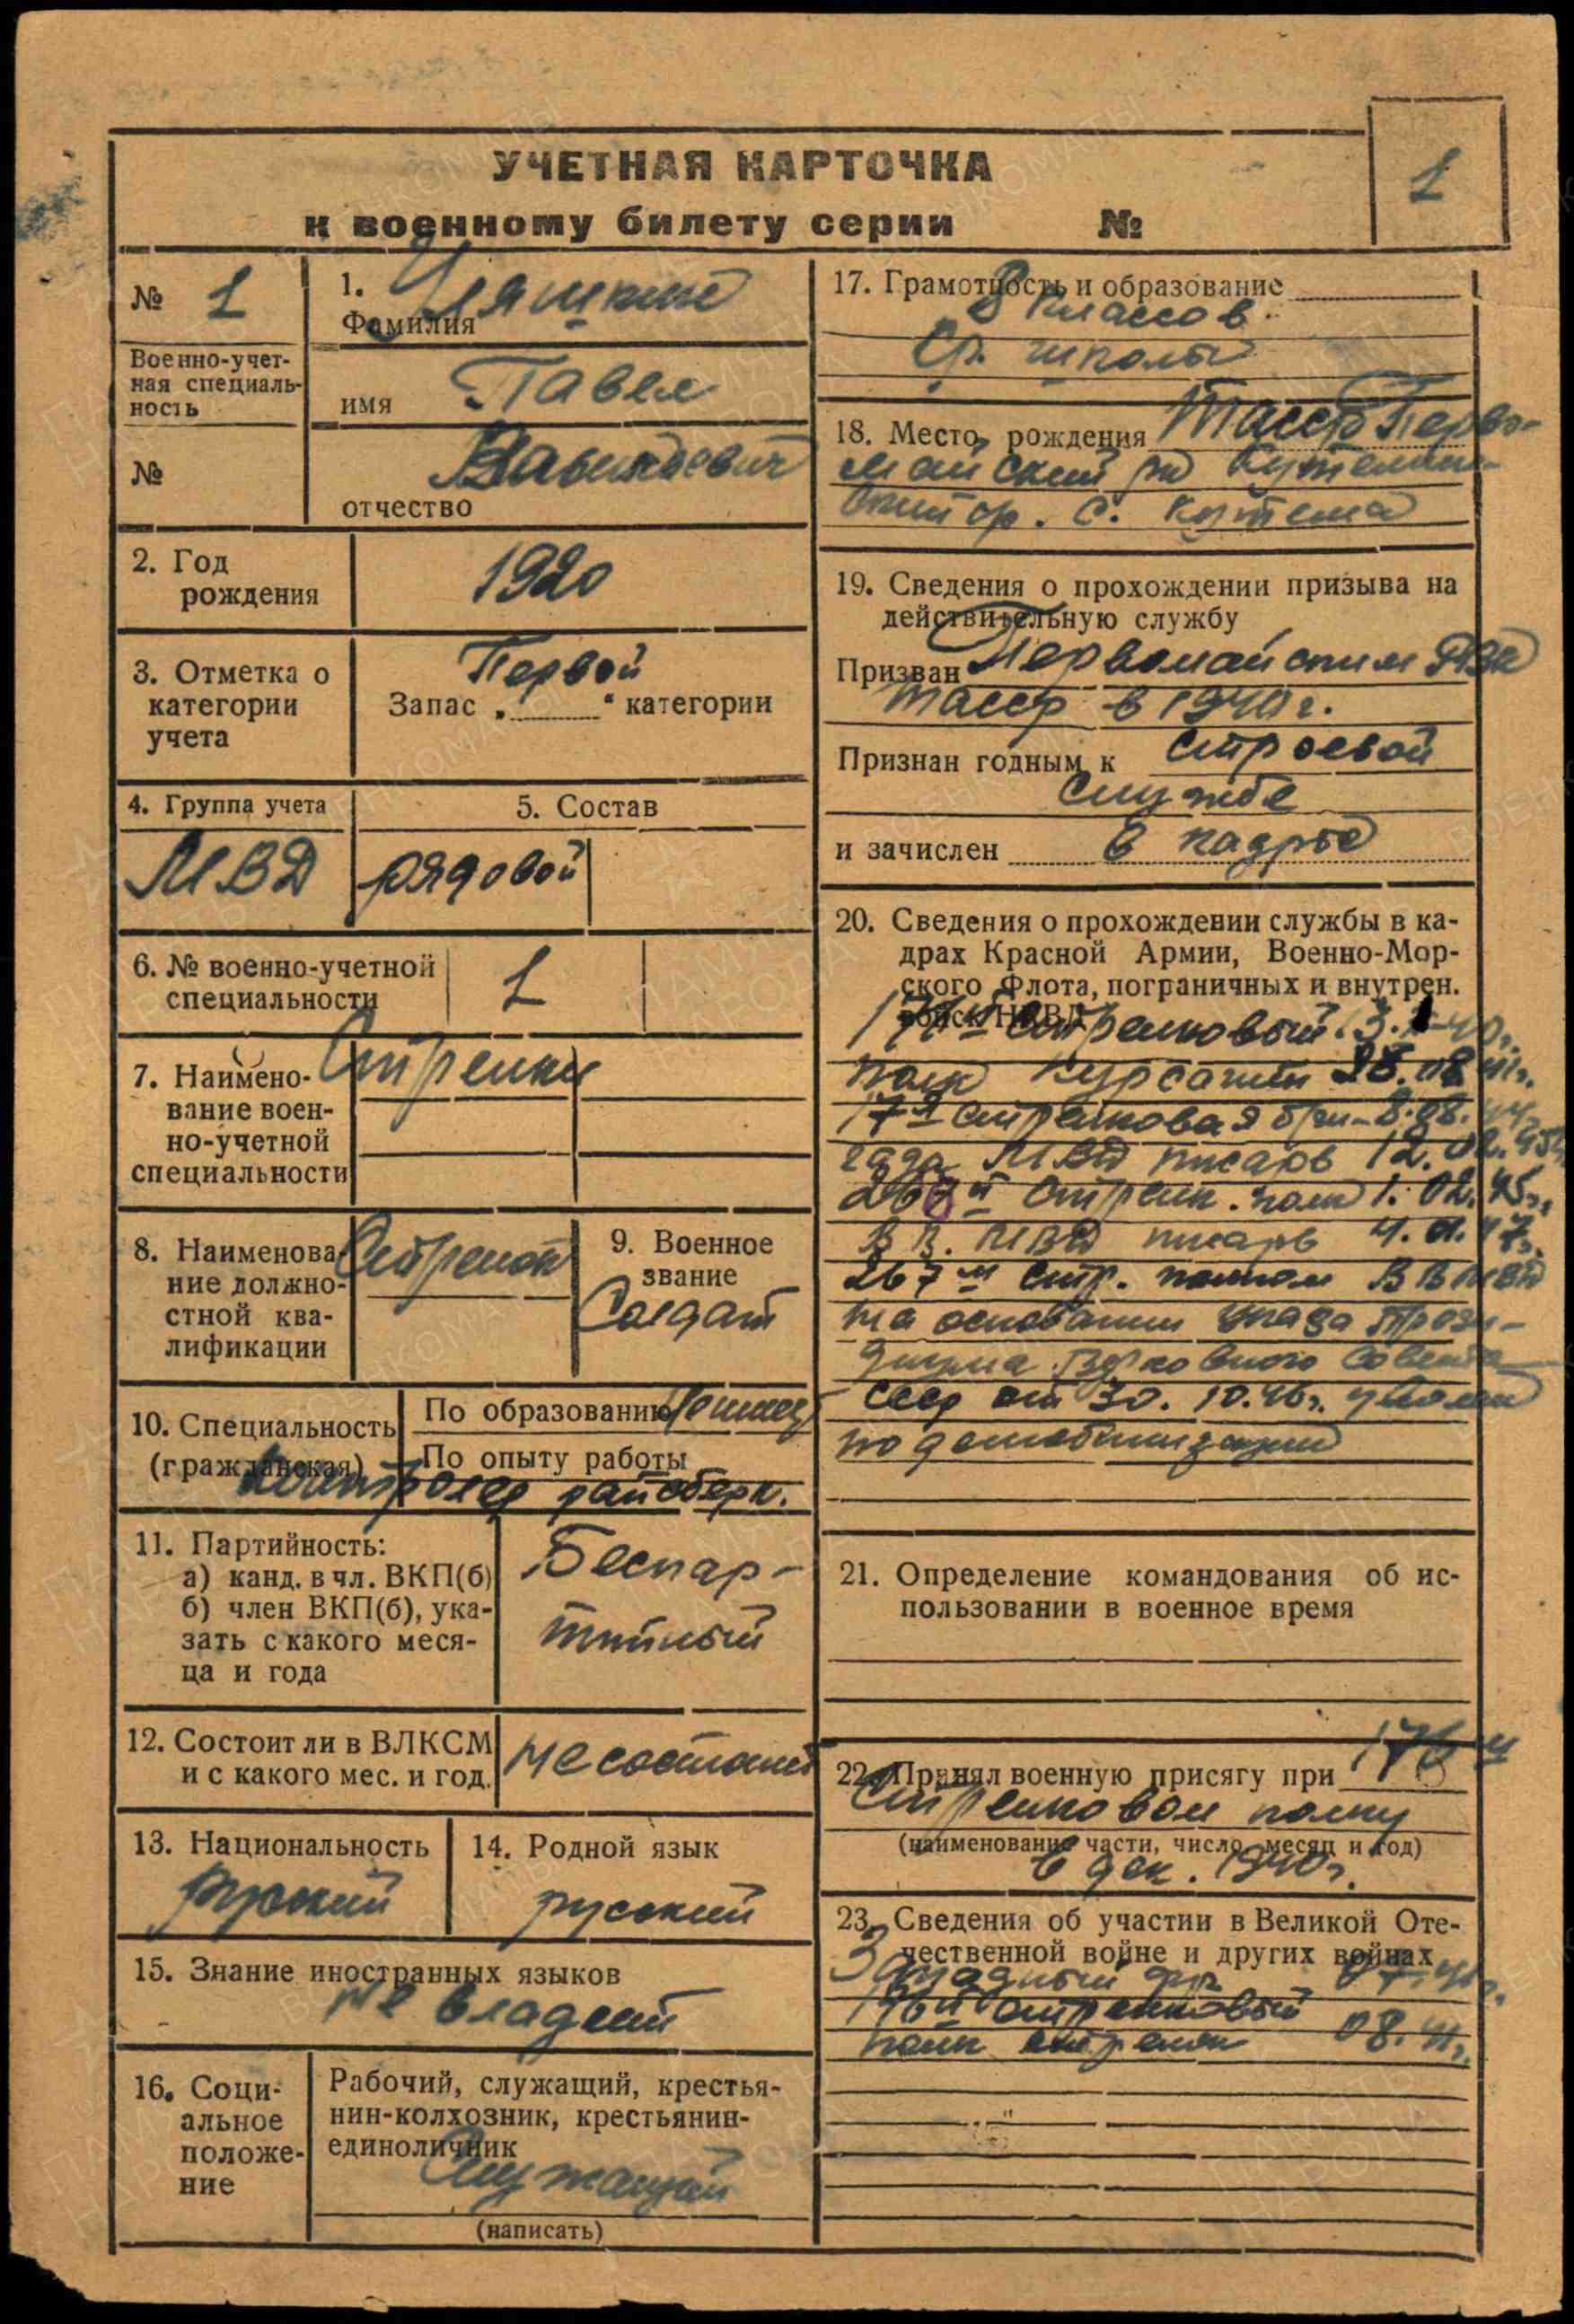 УЧЕТНАЯ КАРТОЧКА
к военному билету серии №
1
№ 1
Военно-учет-
ная специаль-
ность
№
1.
Фамилия
имя Павел
отчество
2. Год
рождения
1920
3. Отметка о
категории
учета
Первой
Запас „ “ категории
4. Группа учета
МВД
5. Состав
рядовой
6. № военно-учетной
специальности
1
7. Наимено-
вание воен-
но-учетной
специальности
Стрелки
8. Наименова-
ние должно-
стной ква-
лификации
Стрелок
9. Военное
звание
Солдат
10. Специальность
(гражданская)
По образованию
По опыту работы
Контролер
11. Партийность:
а) канд. в чл. ВКП(б)
б) член ВКП(б), ука-
зать с какого меся-
ца и года
Беспар-
тийный
12. Состоит ли в ВЛКСМ
и с какого мес. и год.
не состоит
13. Национальность
русский
14. Родной язык
русский
15. Знание иностранных языков
не владеет
16. Соци-
альное
положе-
ние
Рабочий, служащий, крестья-
нин-колхозник, крестьянин-
единоличник
Служащий
(написать)
17. Грамотность и образование
8 классов
Ср. школы
18. Место рождения ТАССР Перво-
майский рн
с. Кутема
19. Сведения о прохождении призыва на
действительную службу
Призван Первомайским РВК
ТАССР в 1940 г.
Признан годным к строевой
службе
и зачислен в кадры
20. Сведения о прохождении службы в ка-
драх Красной Армии, Военно-Мор-
ского Флота, пограничных и внутрен.
войск НКВД
стрелковый
полк курсант 28.08.41г.
17я стрелковая бри- 8.08.
гада МВД писарь 12.02.45г.
267й стрелк. полк 1.02.45г.
В.В. МВД писарь 4.01.47г.
267м стр. полком ВВ МВД
на основании указа Прези-
диума Верховного Совета
СССР от 30.10.46г. уволен
по демобилизации
21. Определение командования об ис-
пользовании в военное время
22. Принял военную присягу при 176м
стрелковом полку
(наименование части, число, месяц и год)
в дек. 1940г.
23. Сведения об участии в Великой Оте-
чественной войне и других войнах
Западный фр. 07.41г.
176й стрелковый
полк стрелок 08.41г.